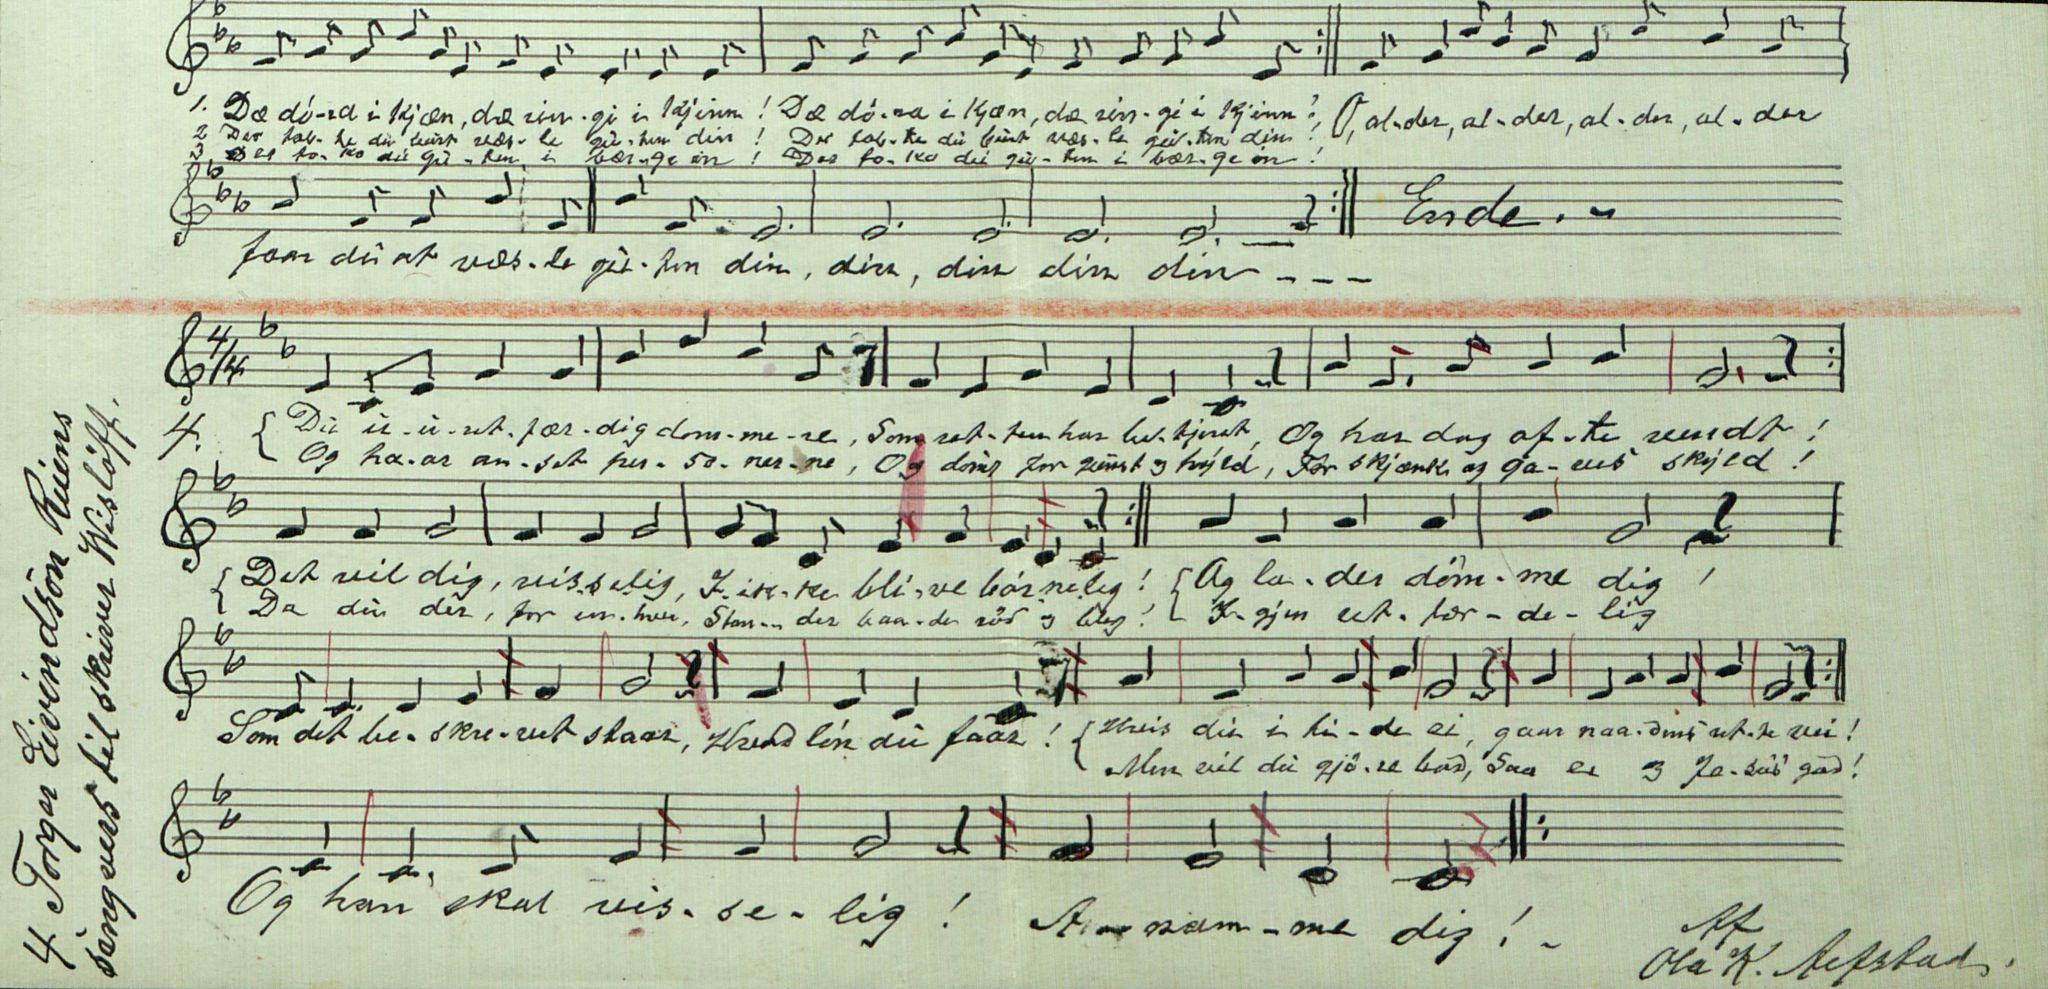 1. Dæ dó-na i Kjæn, dæ rin-gi i Kjinn! Dæ dó-na i Kjæn, dæ rin-gi i Kjinn!, O, al-der, al-der, al-der, al-der
2 Der tab-te du burt væs-le gui-ten din! Der tab-te du burt væs-le gui-ten din!
3 Der to-ko du gui-ten i bær-ge in! Der to-ko du gui-ten i bær-ge in!
faar du at væs-le gui-ten din, din, din din din - - -
Ende. ~
4/4
4. { Du u-u-ret-fær-dig dom-me-re, Som ret-ten har be-tjent, Og har dog of-te vendt!
Og ha-ar an-set per-so-ner-ne, Og dømt for gunst og hyld, For skjænk og ga-ves skyld!
{ Det vil dig, vis-se-lig, I-ik-ke bli-ve bør-ne-leg! { Ag la-der döm-me dig!
Da du der, for en-hver, Stan-der baa-de rød og bleg! { I-gjen ret-fær-de-lig
Som det be-skre-vet staar, Hvad lön du faar! { Hvis du i ti-de ei, gaar naa-dens ret-te vei!
Men vil du gjö-re bod, Saa er og Je-sus god!
Og han skal vis-se-lig! A-nam-me dig! -
Af
Ola K. Aefstad.
4 Torger Eivindsön Ruens
sangvers til skriver Wislöff.